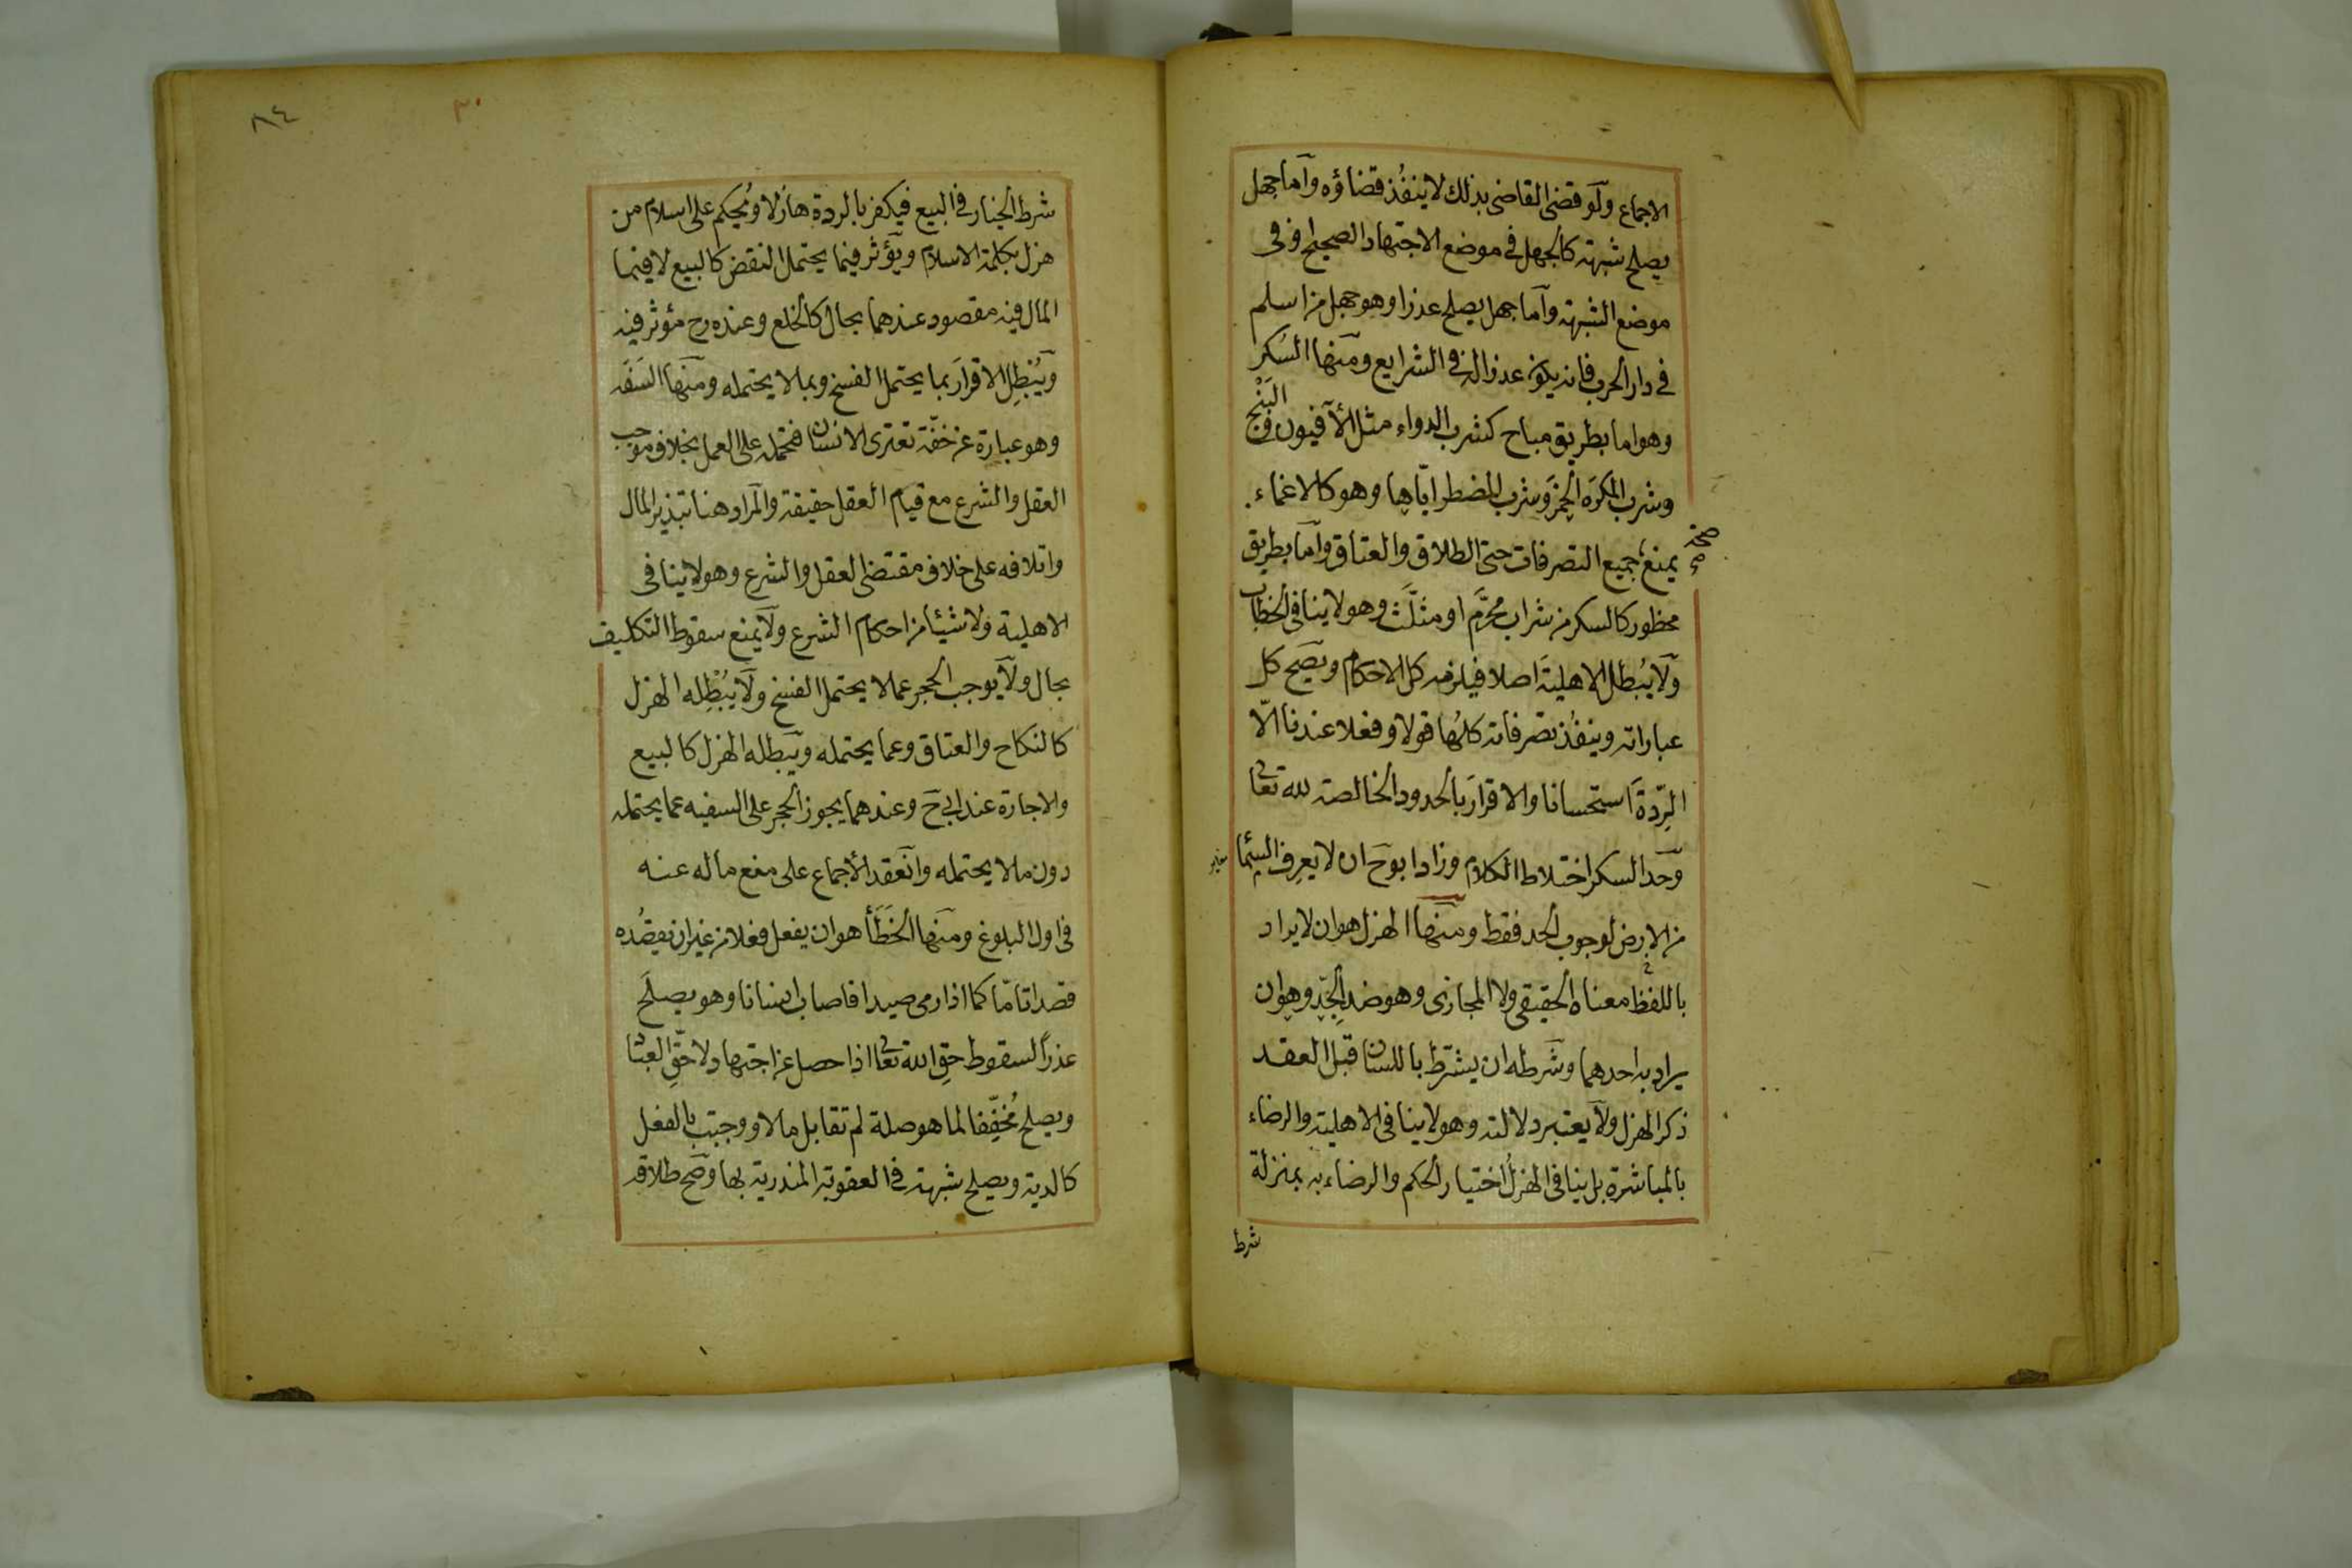 الاجماع ولو قضى القاضى بذلك لا ينفُذ قضاؤه وآما جهل
يصلح شبهة كالجهل فى موضع الاجتهاد الصحيح او فى
موضع الشبهة وآما جهل يصلح عذرا وهو جهل من اسلم
فى دار الحرب فانه يكون عذرا له فى الشرايع ومنها السكر
وهو اما بطريق مباح كشرب الدواء مثل الأفيون و البَنْج
وشرب المكرَه الخمرَ وشرب المضطر اياها وهو كالاغماء
يمنع جميع التصرفات حتى الطلاق والعتاق وآما بطريق
محظور كالسكر من شراب محرَّم او مثلَّث وهو لا ينافى الخطاب
ولا يُبطل الاهليةَ اصلا فيلزمه كل الاحكام ويصح كل
عباراته وينفُذ تصرفاته كلُها قولا وفعلا عندنا الّا
الرِّدةَ استحسانا والاقرارَ بالحدود الخالصة لله تعا
وحد السكر اختلاط الكلام وزاد ابو ح ان لا يعرف السما
من الارض لوجوب الحد فقط ومنها الهزل هو ان لا يراد
باللفظ معناه الحقيقى ولا المجازى وهو ضد الجِدّ وهو ان
يراد به احدهما وشرطه ان يشترط باللسان قبل العقد
ذكر الهزل ولا يعتبر دلالته وهو لا ينافى الاهلية والرضاء
بالمباشرة بل ينافى الهزلُ اختيار الحكم والرضاء به بمنزلة
شرط
٨٤
٣٠
شرط الخيار فى البيع فيكفر بالردة هازلا ويُحكم على اسلام من
هزل بكلمة الاسلام ويؤثر فيما يحتمل النقض كالبيع لا فيما
المال فيه مقصود عندهما بحال كالخلع وعنده رح مؤثر فيه
ويُبْطِل الاقرارَ بما يحتمل الفسخ وبما لا يحتمله ومنها السَفَه
وهو عبارة عن خفّة تعترى الانسان فتحمله على العمل بخلاف موجب
العقل والشرع مع قيام العقل حقيقة والمراد هنا تبذير المال
واتلافه على خلاف مقتضى العقل والشرع وهو لا ينافى
الاهلية ولا شيئا من احكام الشرع ولا يمنع سقوط التكليف
بحال ولا يوجب الحجر عما لا يحتمل الفسخ ولا يُبْطِله الهزل
كالنكاح والعتاق وعما يحتمله ويبطله الهزل كالبيع
والاجارة عند ابى ح وعندهما يجوز الحجر على السفيه عما يحتمله
دون ما لا يحتمله وانعقد الأجماع على منع ماله عنه
فى اول البلوغ ومنها الخَطَأ هو ان يفعل فعلا من غير ان يقصُده
قصدا تامّا كما اذا رمى صيدا فاصاب انسانا وهو يصلح
عذراً لسقوط حقِ الله تعا اذا حصل عن اجتهاد لا حقِّ العبا
ويصلح مُخفِّفا لما هو صلة لم تقابل مالا ووجبت بالفعل
كالدية ويصلح شبهة فى العقوبة المندرية بها وصح طلاقه